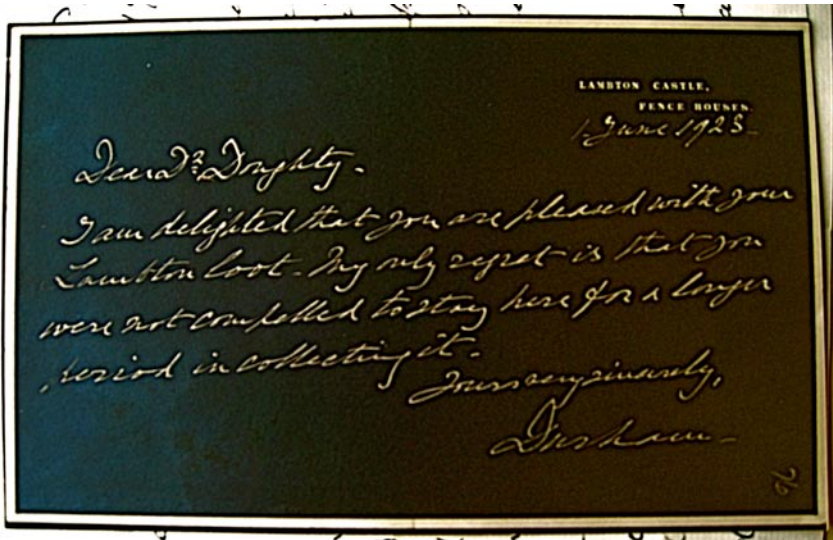 LAMBTON CASTLE,
FENCE HOUSES.
1 June 1923
Dear Dr Doughty.
I am delighted that you are pleased with your
Lambton loot. My only regret is that you
were not compelled to stay here for a longer
period in collecting it.
Yours very sincerely,
Durham